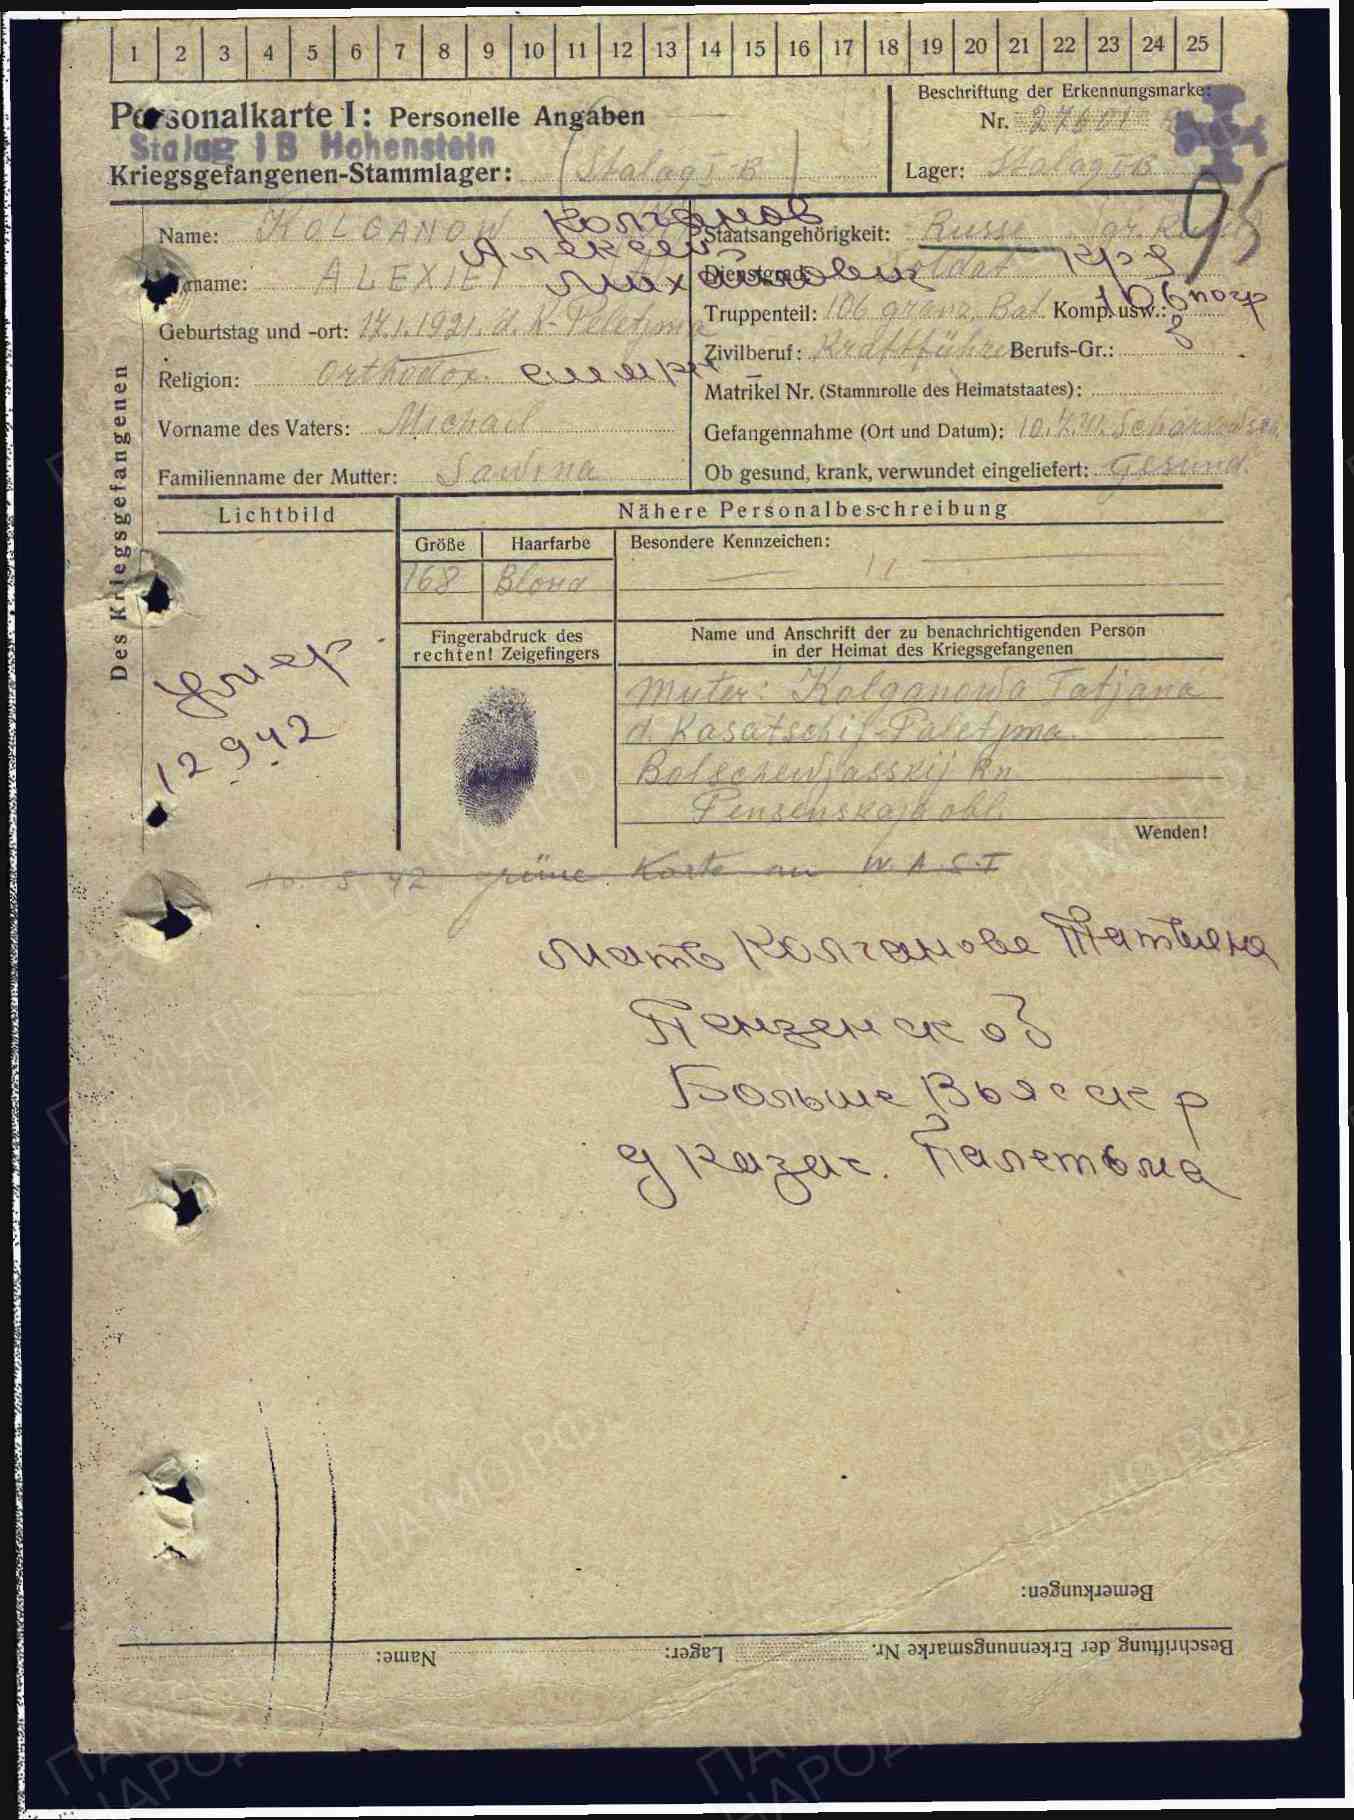 1 2 3 4 5 6 7 8 9 10 11 12 13 14 15 16 17 18 19 20 21 22 23 24 25
Personalkarte I: Personelle Angaben
Stalag IB Hohenstein
Kriegsgefangenen-Stammlager: Stalag I-B
Beschriftung der Erkennungsmarke:
Nr.
Lager: Stalag I-B
95
Des Kriegsgefangenen
Name: KOLGANOW Колганов
Алексей
Vorname: ALEXIEI Михайлович
Geburtstag und -ort: 17.1.1921. d. K-Paletjma
Religion: Orthodox.
Vorname des Vaters: Michail
Familienname der Mutter: Sawina
Staatsangehörigkeit: Russe
Dienstgrad: Soldat кр-ц
Truppenteil: 106 grenz. Bat. Komp. usw.: 106 погр
Zivilberuf: Kraftführer Berufs-Gr.:
Matrikel Nr. (Stammrolle des Heimatstaates):
Gefangennahme (Ort und Datum):
Ob gesund, krank, verwundet eingeliefert: Gesund.
Lichtbild
Nähere Personalbeschreibung
Größe Haarfarbe Besondere Kennzeichen:
168 Blond
Fingerabdruck des
rechten! Zeigefingers
Name und Anschrift der zu benachrichtigenden Person
in der Heimat des Kriegsgefangenen
Muter: Kolganowa Tatjana
d. Kasatschij-Paletjma
Bolschewjasskij Rn
Pensenskaja obl.
Wenden!
умер
12 9 42
10 5 42 grüne Karte an W.A.S.T
Мать Колганова Татьяна
Пензенск об
Больше Вьясск р
д Казач. Палетьма
Bemerkungen:
Beschriftung der Erkennungsmarke Nr. Lager: Name: